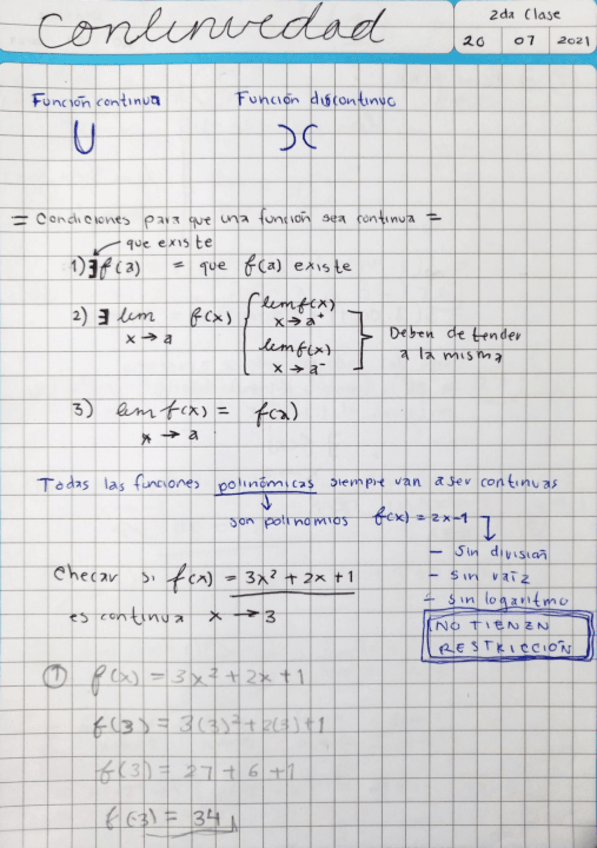 Continuedad
2da Clase
20 07 2021
Función continua
Función discontinua
= Condiciones para que una función sea continua =
que existe
1) ∃ f(a) = que f(a) existe
2) ∃ lim f(x)
x → a
lim f(x)
x → a⁺
lim f(x)
x → a⁻
Deben de tender
a la misma
3) lim f(x) = f(a)
x → a
Todas las funciones polinómicas siempre van a ser continuas
son polinomios f(x) = 2x-1
- Sin división
- Sin raíz
- Sin logaritmo
NO TIENEN
RESTRICCIÓN
Checar si f(x) = 3x² + 2x + 1
es continua x → 3
① f(x) = 3x² + 2x + 1
f(3) = 3(3)² + 2(3) + 1
f(3) = 27 + 6 + 1
f(3) = 34